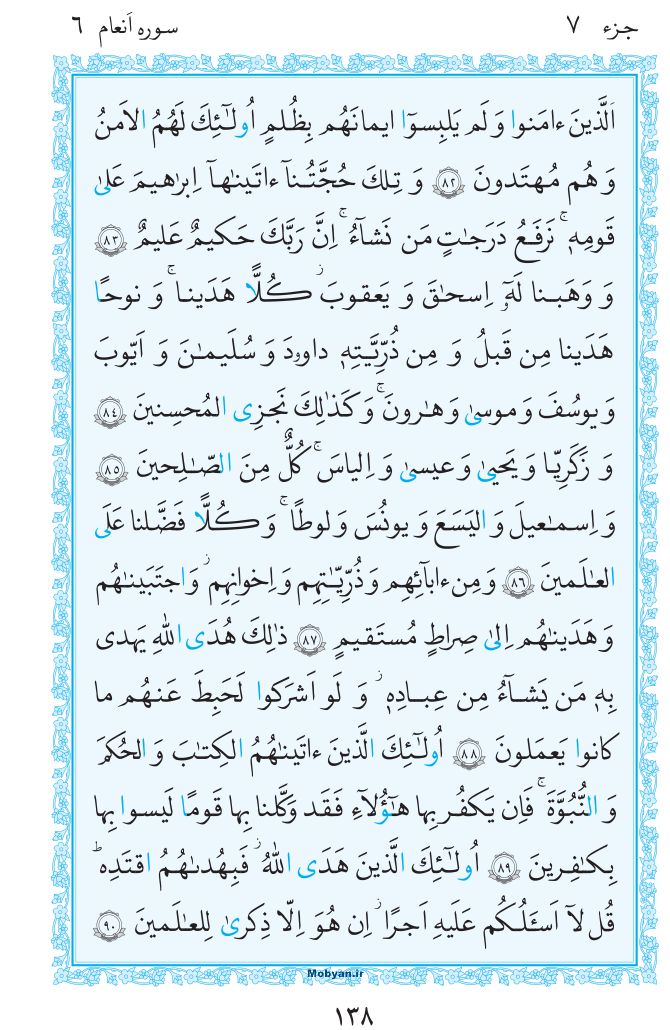 جزء ٧ سوره اَنعام ٦
اَلَّذینَ ءامَنوا وَ لَم یَلبِسوٓا ایمانَهُم بِظُلمٍ اُولٰٓئِكَ لَهُمُ الاَمنُ
وَ هُم مُهتَدونَ ٨٢ وَ تِلكَ حُجَّتُنآ ءاتَینٰهآ اِبرٰهیمَ عَلیٰ
قَومِهٖ ۚ نَرفَعُ دَرَجٰتٍ مَن نَشآءُ ۚ اِنَّ رَبَّكَ حَكیمٌ عَلیمٌ ٨٣
وَ وَهَبنا لَهٗٓ اِسحٰقَ وَ یَعقوبَ ۚ كُلًّا هَدَینا ۚ وَ نوحًا
هَدَینا مِن قَبلُ وَ مِن ذُرِّیَّتِهٖ داوودَ وَ سُلَیمٰنَ وَ اَیّوبَ
وَ یوسُفَ وَ موسیٰ وَ هٰرونَ ۚ وَ كَذٰلِكَ نَجزِی المُحسِنینَ ٨٤
وَ زَكَرِیّا وَ یَحییٰ وَ عیسیٰ وَ اِلیاسَ ۚ كُلٌّ مِنَ الصّٰلِحینَ ٨٥
وَ اِسمٰعیلَ وَ الیَسَعَ وَ یونُسَ وَ لوطًا ۚ وَ كُلًّا فَضَّلنا عَلَی
العٰلَمینَ ٨٦ وَ مِن ءابآئِهِم وَ ذُرِّیّٰتِهِم وَ اِخوانِهِم ۖ وَ اجتَبَینٰهُم
وَ هَدَینٰهُم اِلیٰ صِراطٍ مُستَقیمٍ ٨٧ ذٰلِكَ هُدَی اللّٰهِ یَهدی
بِهٖ مَن یَشآءُ مِن عِبادِهٖ ۚ وَ لَو اَشرَكوا لَحَبِطَ عَنهُم ما
كانوا یَعمَلونَ ٨٨ اُولٰٓئِكَ الَّذینَ ءاتَینٰهُمُ الكِتٰبَ وَ الحُكمَ
وَ النُّبُوَّةَ ۚ فَاِن یَكفُر بِها هٰٓؤُلآءِ فَقَد وَكَّلنا بِها قَومًا لَیسوا بِها
بِكٰفِرینَ ٨٩ اُولٰٓئِكَ الَّذینَ هَدَی اللّٰهُ ۖ فَبِهُدىٰهُمُ اقتَدِه ۗ
قُل لآ اَسـَٔلُكُم عَلَیهِ اَجرًا ۖ اِن هُوَ اِلّا ذِكریٰ لِلعٰلَمینَ ٩٠
Mobyan.ir
١٣٨